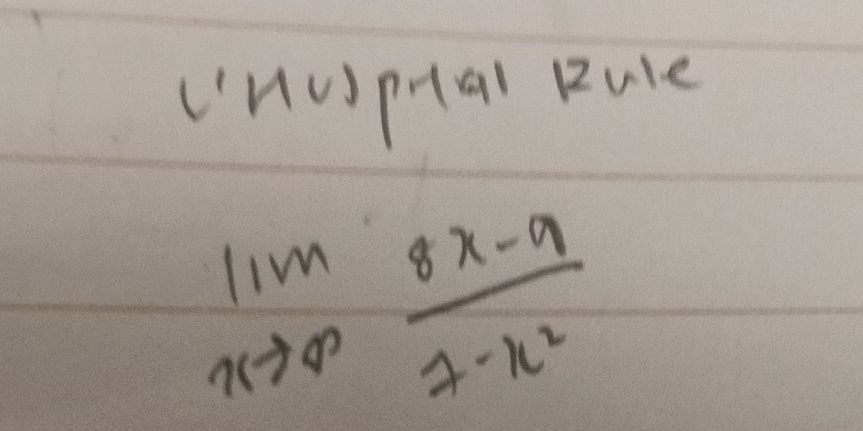 L'Hospital Rule
lim 8x-9
x→∞ 7-x²